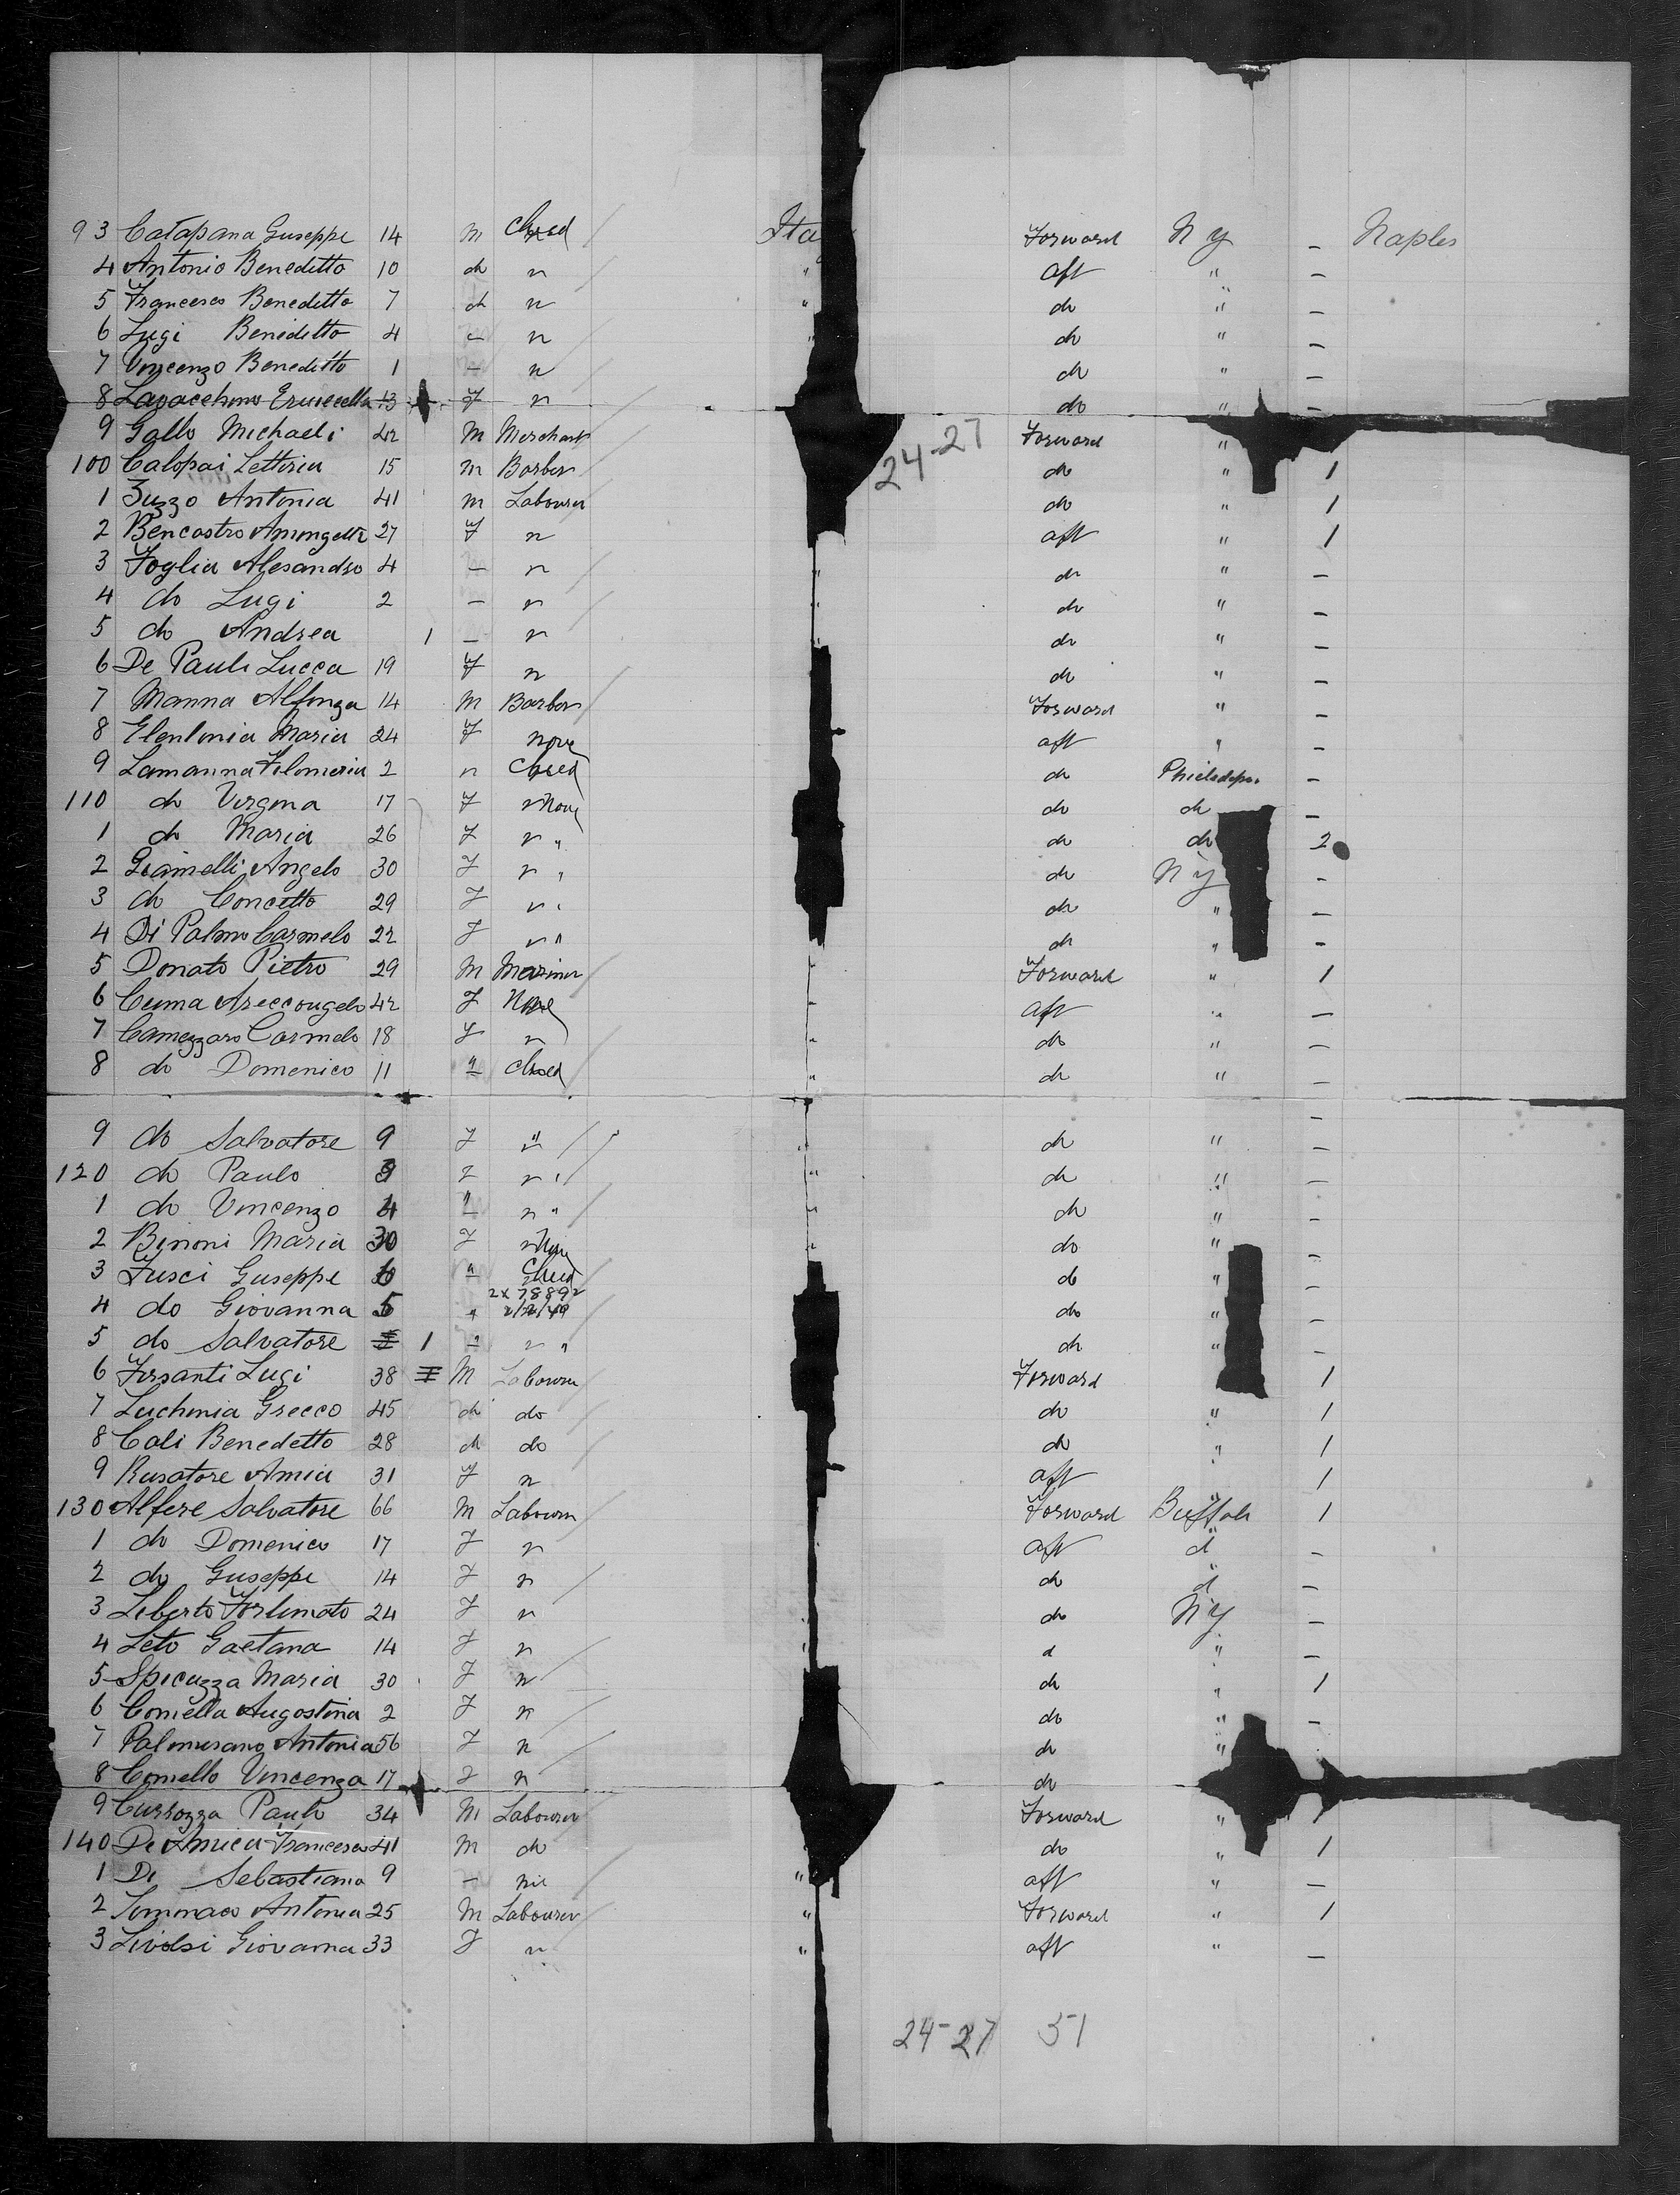 93 Catapana Guseppe 14 M Child Ita Forward N Y — Naples
4 Antonio Beneditto 10 do n " aft " —
5 Francesco Beneditto 7 do n " do " —
6 Lugi Beneditto 4 — n " do " —
7 Vincenzo Beneditto 1 — n do " —
8 13 F n do " —
9 Gallo Michaeli 42 M Merchant 24-27 Forward "
100 Calopai Letteria 15 M Barber do " 1
1 Zuzzo Antonia 41 M Labourer do " 1
2 Bencastro 27 F n aft " 1
3 Foglia Alesandro 4 — n " do " —
4 do Lugi 2 — n " do " —
5 do Andrea 1 — n " do " —
6 De Pauli Lucca 19 F n do " —
7 Manna Alfonza 14 M Barber Forward " —
8 Maria 24 F none aft " —
9 Lamanna Filomeria 2 n Child do —
110 do Virgina 17 F None do do —
1 do Maria 26 F n " do do 2
2 Giamelli Angelo 30 F n " do N Y —
3 do Concetto 29 F n " do " —
4 Di Palmo Carmelo 22 F n " do " —
5 Donato Pietro 29 M Mariner Forward " 1
6 Cuma 42 F None aft " —
7 Camezzaro Carmelo 18 F n do " —
8 do Domenico 11 " Child " do " —
9 do Salvatore 9 F " do " —
120 do Paulo n " " do " —
1 do Vincenzo 4 " n " do " —
2 Binoni Maria 30 F None do " —
3 Fusci Guseppe " Child do " —
2x78892
4 do Giovanna 5 " 2/2/49 do " —
5 do Salvatore 1 " n " do " —
6 Forsanti Lugi 38 M Labourer Forward 1
7 Luchinia Grecco 45 do do do " 1
8 Cali Benedetto 28 do do do " 1
9 Rusatore Amia 31 F n aft " 1
130 Alfere Salvatore 66 M Labourer Forward Buffalo 1
1 do Domenico 17 F n aft d —
2 do Guseppe 14 F n do d —
3 Liberto Fortunato 24 F n do N Y —
4 Leto Gaetana 14 F n d " —
5 Spicuzza Maria 30 F n do " 1
6 Comella Augostina 2 F n do " —
7 Palmisano Antonia 56 F n do "
8 Comello Vincenza 17 F n do
9 Currozza Paulo 34 M Labourer Forward " 1
140 De Amica Francesco 41 M do do " 1
1 De Sebastiano 9 — nil " aft " —
2 Tommaco Antonia 25 M Labourer " Forward " 1
3 Livolsi Giovanna 33 F n " aft " —
24-27 51